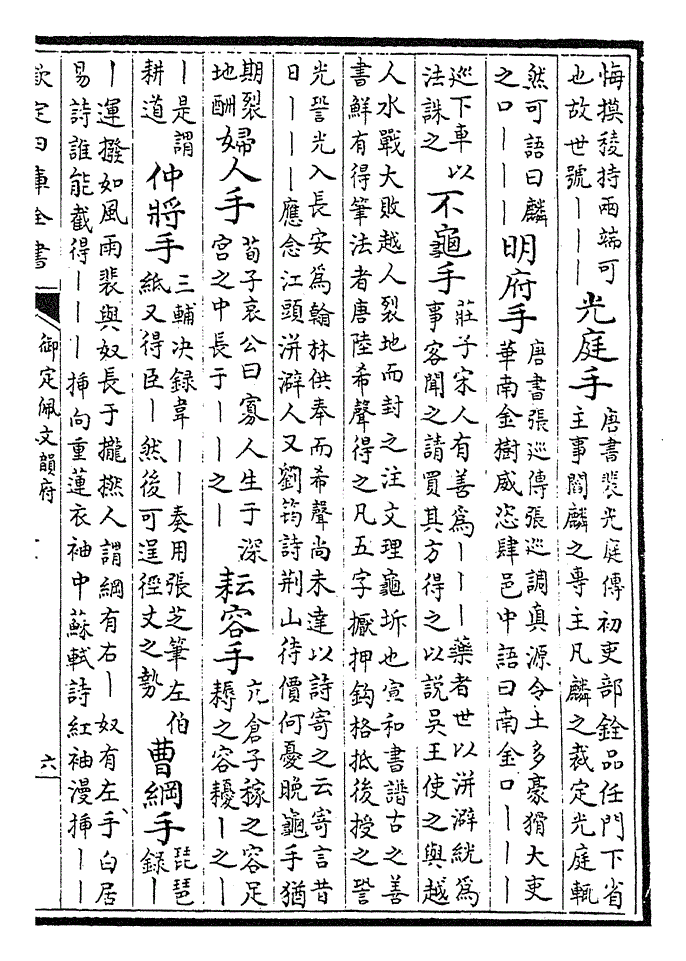 悔摸稜持兩端可
也故世號｜｜｜
光庭手
唐書裴光庭傳初吏部銓品任門下省
主事閻麟之專主凡麟之裁定光庭輒
然可語曰麟
之口｜｜｜
明府手
唐書張巡傳張巡調真源令土多豪猾大吏
華南金樹威恣肆邑中語曰南金口｜｜｜
巡下車以
法誅之
不龜手
莊子宋人有善為｜｜｜藥者世以洴澼絖為
事客聞之請買其方得之以說吳王使之與越
人水戰大敗越人裂地而封之注文理龜坼也宣和書譜古之善
書鮮有得筆法者唐陸希聲得之凡五字擫押鈎格抵後授之䛒
光䛒光入長安為翰林供奉而希聲尚未達以詩寄之云寄言昔
日｜｜｜應念江頭洴澼人又劉筠詩荆山待價何憂晚龜手猶
期裂
地酬
婦人手
荀子哀公曰寡人生于深
宫之中長于｜｜之｜
耘容手
亢倉子稼之容足
耨之容耰｜之｜
｜是謂
耕道
仲將手
三輔决録韋｜｜奏用張芝筆左伯
紙又得臣｜然後可逞徑丈之勢
曹綱手
琵琶
録｜
｜運撥如風雨裴與奴長于攏撚人謂綱有右｜奴有左手白居
易詩誰能截得｜｜｜揷向重蓮衣袖中蘇軾詩紅袖漫揷｜｜
欽定四庫全書
御定佩文韻府
六